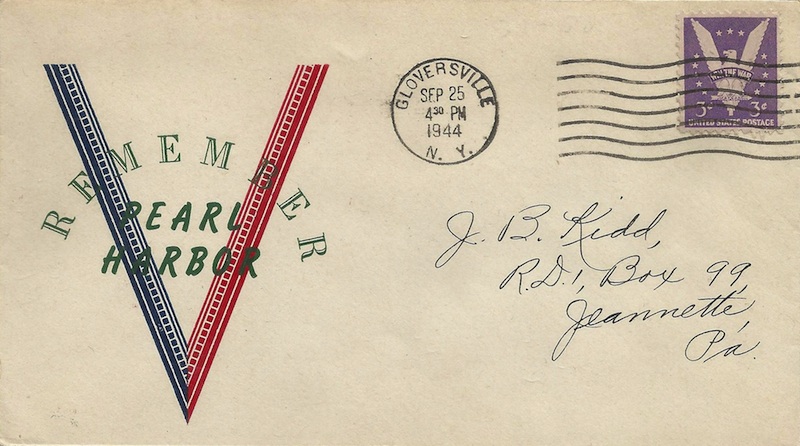 REMEMBER
PEARL
HARBOR
GLOVERSVILLE
SEP 25
4 30 PM
1944
N. Y.
WIN THE WAR
3¢ 3¢
UNITED STATES POSTAGE
J. B. Kidd,
R.D.1, Box 99,
Jeannette,
Pa.